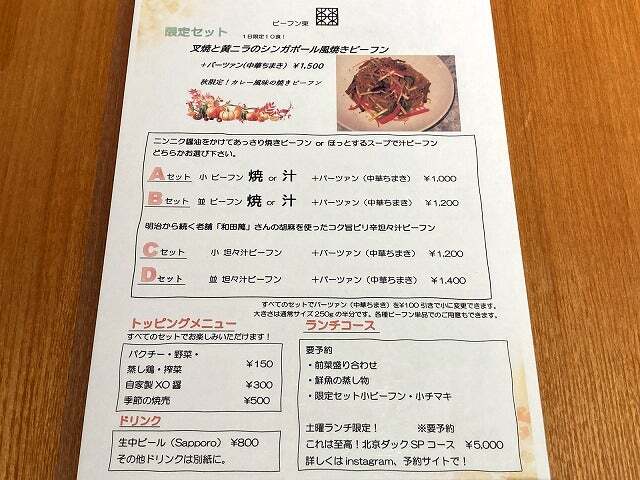 ビーフン東
限定セット
1日限定10食！
叉焼と黄ニラのシンガポール風焼きビーフン
＋バーツァン(中華ちまき) ￥1,500
秋限定！カレー風味の焼きビーフン
ニンニク醤油をかけてあっさり焼きビーフン or ほっとするスープで汁ビーフン
どちらかお選び下さい。
Aセット 小 ビーフン 焼 or 汁 ＋バーツァン（中華ちまき） ￥1,000
Bセット 並 ビーフン 焼 or 汁 ＋バーツァン（中華ちまき） ￥1,200
明治から続く老舗「和田萬」さんの胡麻を使ったコク旨ピリ辛坦々汁ビーフン
Cセット 小 坦々汁ビーフン ＋バーツァン（中華ちまき） ￥1,200
Dセット 並 坦々汁ビーフン ＋バーツァン（中華ちまき） ￥1,400
すべてのセットでバーツァン（中華ちまき）を¥100引きで小に変更できます。
大きさは通常サイズ250gの半分です。各種ビーフン単品でのご用意もできます。
トッピングメニュー
すべてのセットでお楽しみいただけます！
パクチー・野菜・
蒸し鶏・搾菜 ￥150
自家製XO醤 ￥300
季節の焼売 ￥500
ドリンク
生中ビール（Sapporo） ￥800
その他ドリンクは別紙に。
ランチコース
要予約
・前菜盛り合わせ
・鮮魚の蒸し物
・限定セット小ビーフン・小チマキ
土曜ランチ限定！ ※要予約
これは至高！北京ダックSPコース ￥5,000
詳しくはinstagram、予約サイトで！